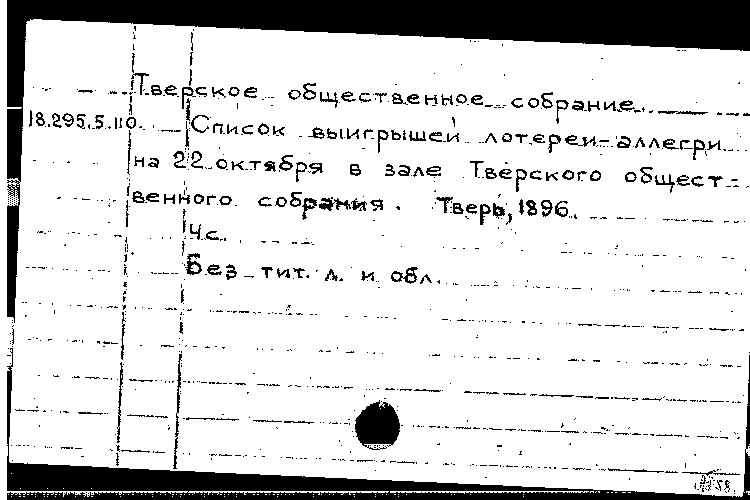 Тверское общественное собрание.
18.295.5.110. Список выигрышей лотереи-аллегри
на 22 октября в зале Тверского общест-
венного собрания. Тверь, 1896.
4 с.
Без тит. л. и обл.